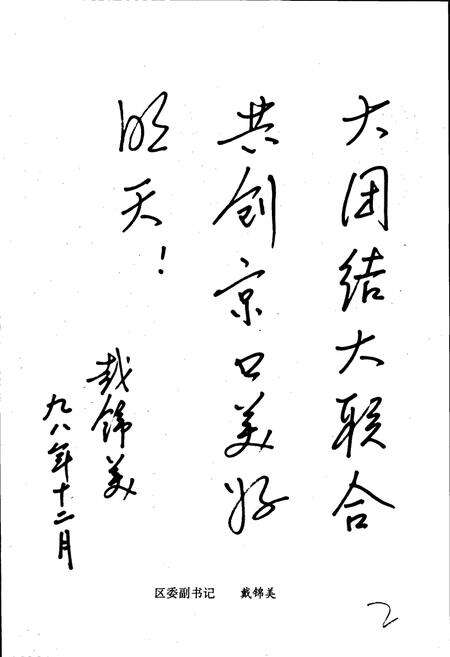 大团结大联合
共创京口美好
明天！
戴锦美
九八年十二月
区委副书记 戴锦美
2